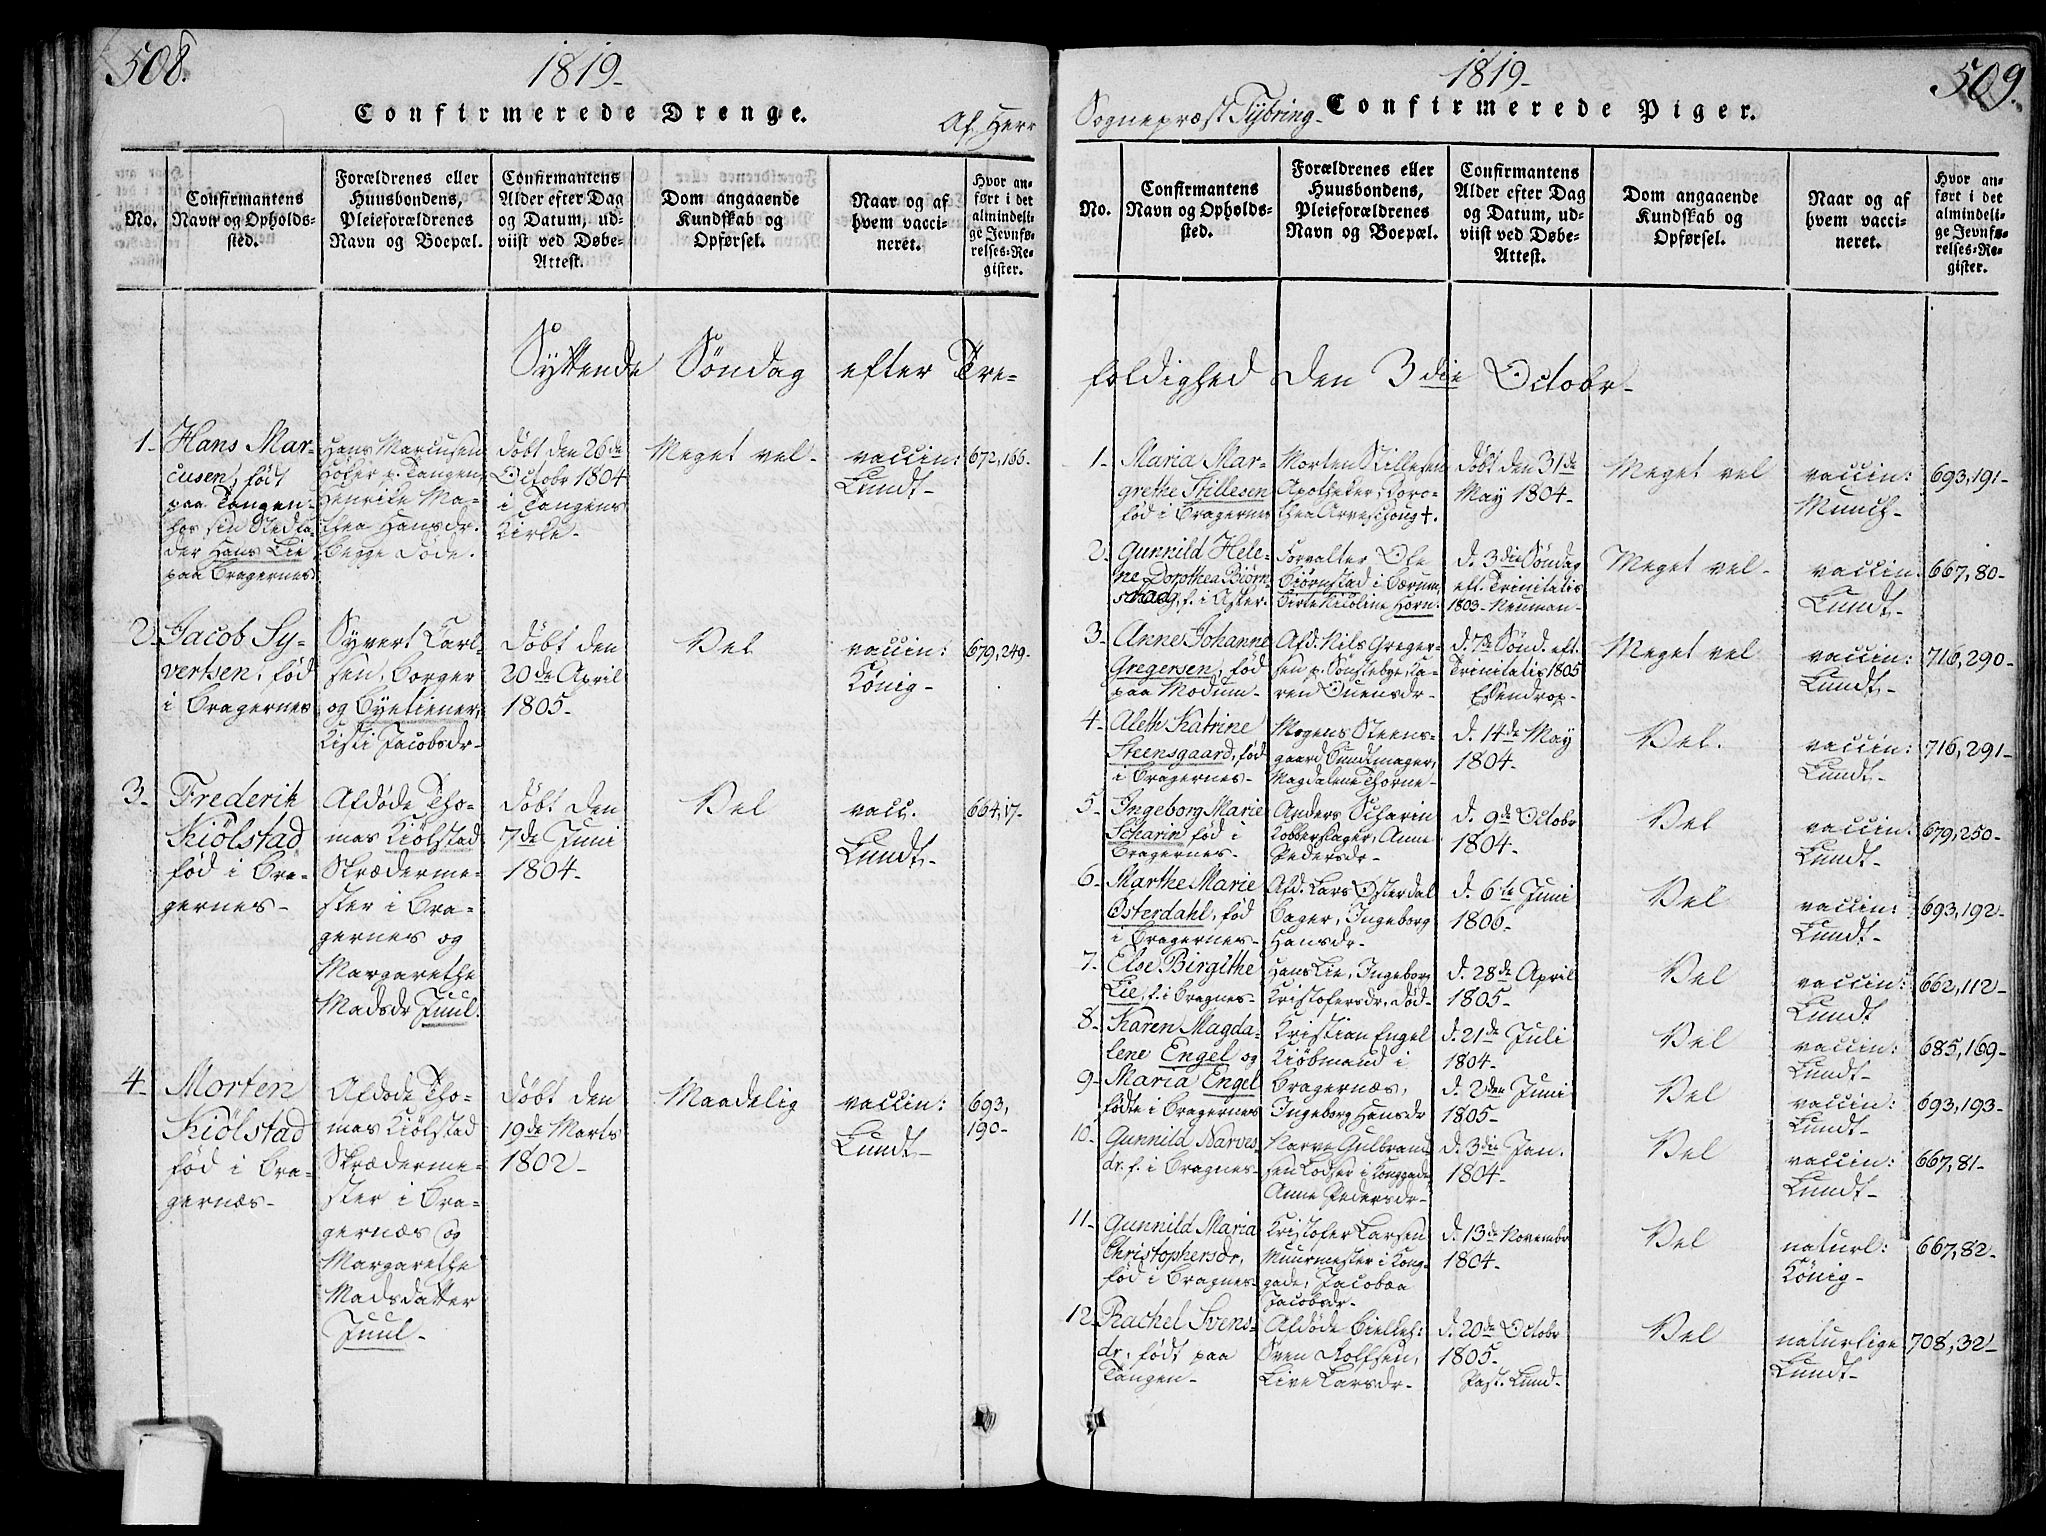 508.
1819-
Confirmerede Drenge.
Af. Herr
No.
Confirmantens
Navn og Opholds-
sted.
Forældrenes eller
Huusbondens,
Pleieforældrenes
Navn og Boepæl.
Confirmantens
Alder efter Dag
og Datum, ud-
viist ved Døbe-
Attest.
Dom angaaende
Kundskab og
Opførsel.
Naar og af
hvem vacci-
neret.
Hvor an-
ført i det
almindeli-
ge Jevnfø-
relses-Re-
gister.
Syttende Søndag efter Tre-
1-
Hans Mar-
cusen, født
paa Tangen
hos sin
der Hans Lie
paa Bragernes.
Hans Marcusen
p. Tangen,
Henrike Ma-
thea Hansdr.
begge døde.
døbt den 26de
Octobr 1804
i Tangens
Kirke-
Meget vel-
vaccin:
Lundt-
672,166-
2-
Jacob Sy-
vertsen, fød
i Bragernes
Syvert Carl-
sen, borger
og
Kisti Jacobsdr-
døbt den
20de April
1805-
Vel
vaccin:
König-
679,249-
3-
Frederik
Kiölstad
fød i Bra-
gernes-
Afdøde Tho-
mas Kiölstad
Skræderme-
ster i Bra-
gernes og
Margarethe
Madsdr Juul.
døbt den
7de Juni
1804-
Vel
vacc.
Lundt-
664,17-
4-
Morten
Kiölstad
fød i Bra-
gernæs-
Afdøde Tho-
mas Kiölstad
Skræderme-
ster i Bra-
gernæs og
Margarethe
Madsdatter
Juul-
døbt den
19de Marts
1802-
Maadelig
vaccin:
Lundt-
693,
190-
1819-
509.
Sognepræst Tybring-
Confirmerede Piger.
No.
Confirmantens
Navn og Opholds-
sted.
Forældrenes eller
Huusbondens,
Pleieforældrenes
Navn og Boepæl.
Confirmantens
Alder efter Dag
og Datum, ud-
viist ved Døbe-
Attest.
Dom angaaende
Kundskab og
Opførsel.
Naar og af
hvem vacci-
neret.
Hvor an-
ført i det
almindeli-
ge Jevnfø-
relses-Re-
gister.
foldighed den 3die Octobr-
1-
Maria Mar-
grethe Stillesen
fød i Bragernes
Morten Stillesen
Apotheker, Doro-
thea Arveschoug †.
døbt den 31de
May 1804-
Meget vel
vaccin:
Munch-
693,191-
2-
Gunnild Hele-
ne Dorothea Biörn
stad, f. i Asker.
Forvalter Ole
Biörnstad i Bærum,
Birte Nicoline Horn.
d. 3die Søndag
eft. Trinitatis
1803- Neuman-
Meget vel-
vaccin
Lundt-
667,80-
3-
Anne Johanne
Gregersen, fød
paa Modum-
Afd. Nils Greger-
sen p. Sønsteby, Ka-
ren Ouensdr-
d. 7de Sønd. eft.
Trinitatis 1805
Essendrop-
Meget vel
vaccin:
Lundt-
716,290-
4-
Aleth Katrine
Steensgaard, fød
i Bragernes-
Mogens Steens-
gaard Bundtmager,
Magdalene Thorne-
d. 14de May
1804-
Vel.
vaccin:
Lundt-
716,291-
5-
Ingeborg Marie
Scharin fød i
Bragernes-
Anders Scharin
Kobberslager, Anne
Pedersdr-
d. 9de Octobr
1804-
Vel
vaccin:
Lundt-
679,250-
6-
Marthe Marie
Østerdahl, fød
i Bragernes-
Afd. Lars Østerdal
Bager, Ingeborg
Hansdr-
d. 6te Juni
1806-
Vel
vaccin:
Lundt-
693,192-
7-
Else Birgithe
Lie, f. i Bragnes-
Hans Lie, Ingebor
Kristofersdr, død-
d. 28de April
1805-
Vel
vaccin:
Lundt
662,112-
8-
Karen Magda-
lene Engel og
Kristian Engel
Kiöbmand i
d. 21de Juli
1804-
Vel
vaccin:
Lundt-
685,169-
9-
Maria Engel
fødte i Bragernes
Bragernæs,
Ingeborg Hansdr
d. 2den Juni
1805-
Vel
vaccin:
Lundt-
693,193-
10-
Gunnild Narves
dr. f. i Bragnes-
Narve Gulbrand
sen Lodser i Konggade,
Anne Pedersdr-
d. 3die Jan.
1804-
Vel
vaccin:
Lundt-
667,81-
11-
Gunnild Maria
Christophersdr,
fød i Bragnes-
Kristofer Larsen
Muurmester i Kong-
gade, Jacobæa
Jacobsdr-
d. 13de Novembr
1804-
Vel
naturl:
König-
667,82-
12-
Rachel Svens-
dr, født paa
Tangen-
Afdøde
Sven Rolfsen,
Live Larsdr-
d. 20de Octobr
1805-
Past. Lund-
Vel
naturlige
Lundt-
708,32-